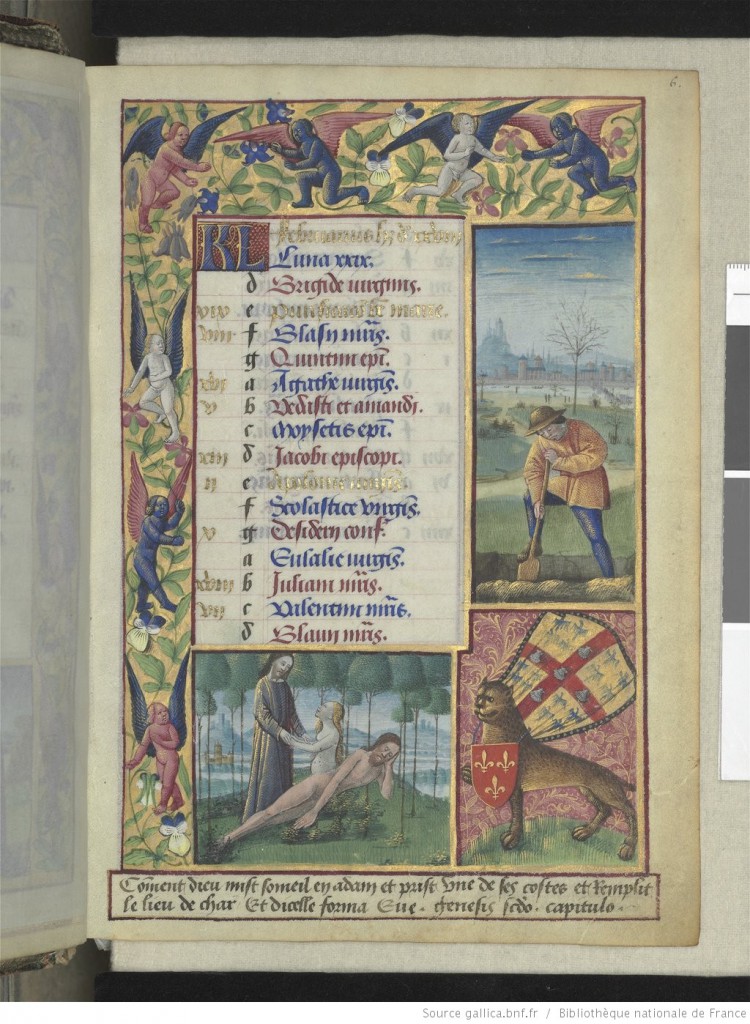 6.
KL Februarius
Luna xxix.
d Brigide virginis.
xix e
viii f Blasii mr̃is.
g Quintini ep̃i.
xvi a Agathe virgĩs.
v b Vedasti et amandi.
c Moysetis ep̃i.
xiii d Jacobi episcopi.
ii e
f Scolastice virgĩs.
x g Desiderii conf.
a Eulalie virgĩs.
xviii b Juliani mr̃is.
vii c Valentini mr̃is.
d Blaun mr̃is.
Cõment dieu mist someil en adam et prist vne de ses costes et Remplit
le lieu de char Et dicelle forma Eue. genesis sc̃do. capitulo.
Source gallica.bnf.fr / Bibliothèque nationale de France